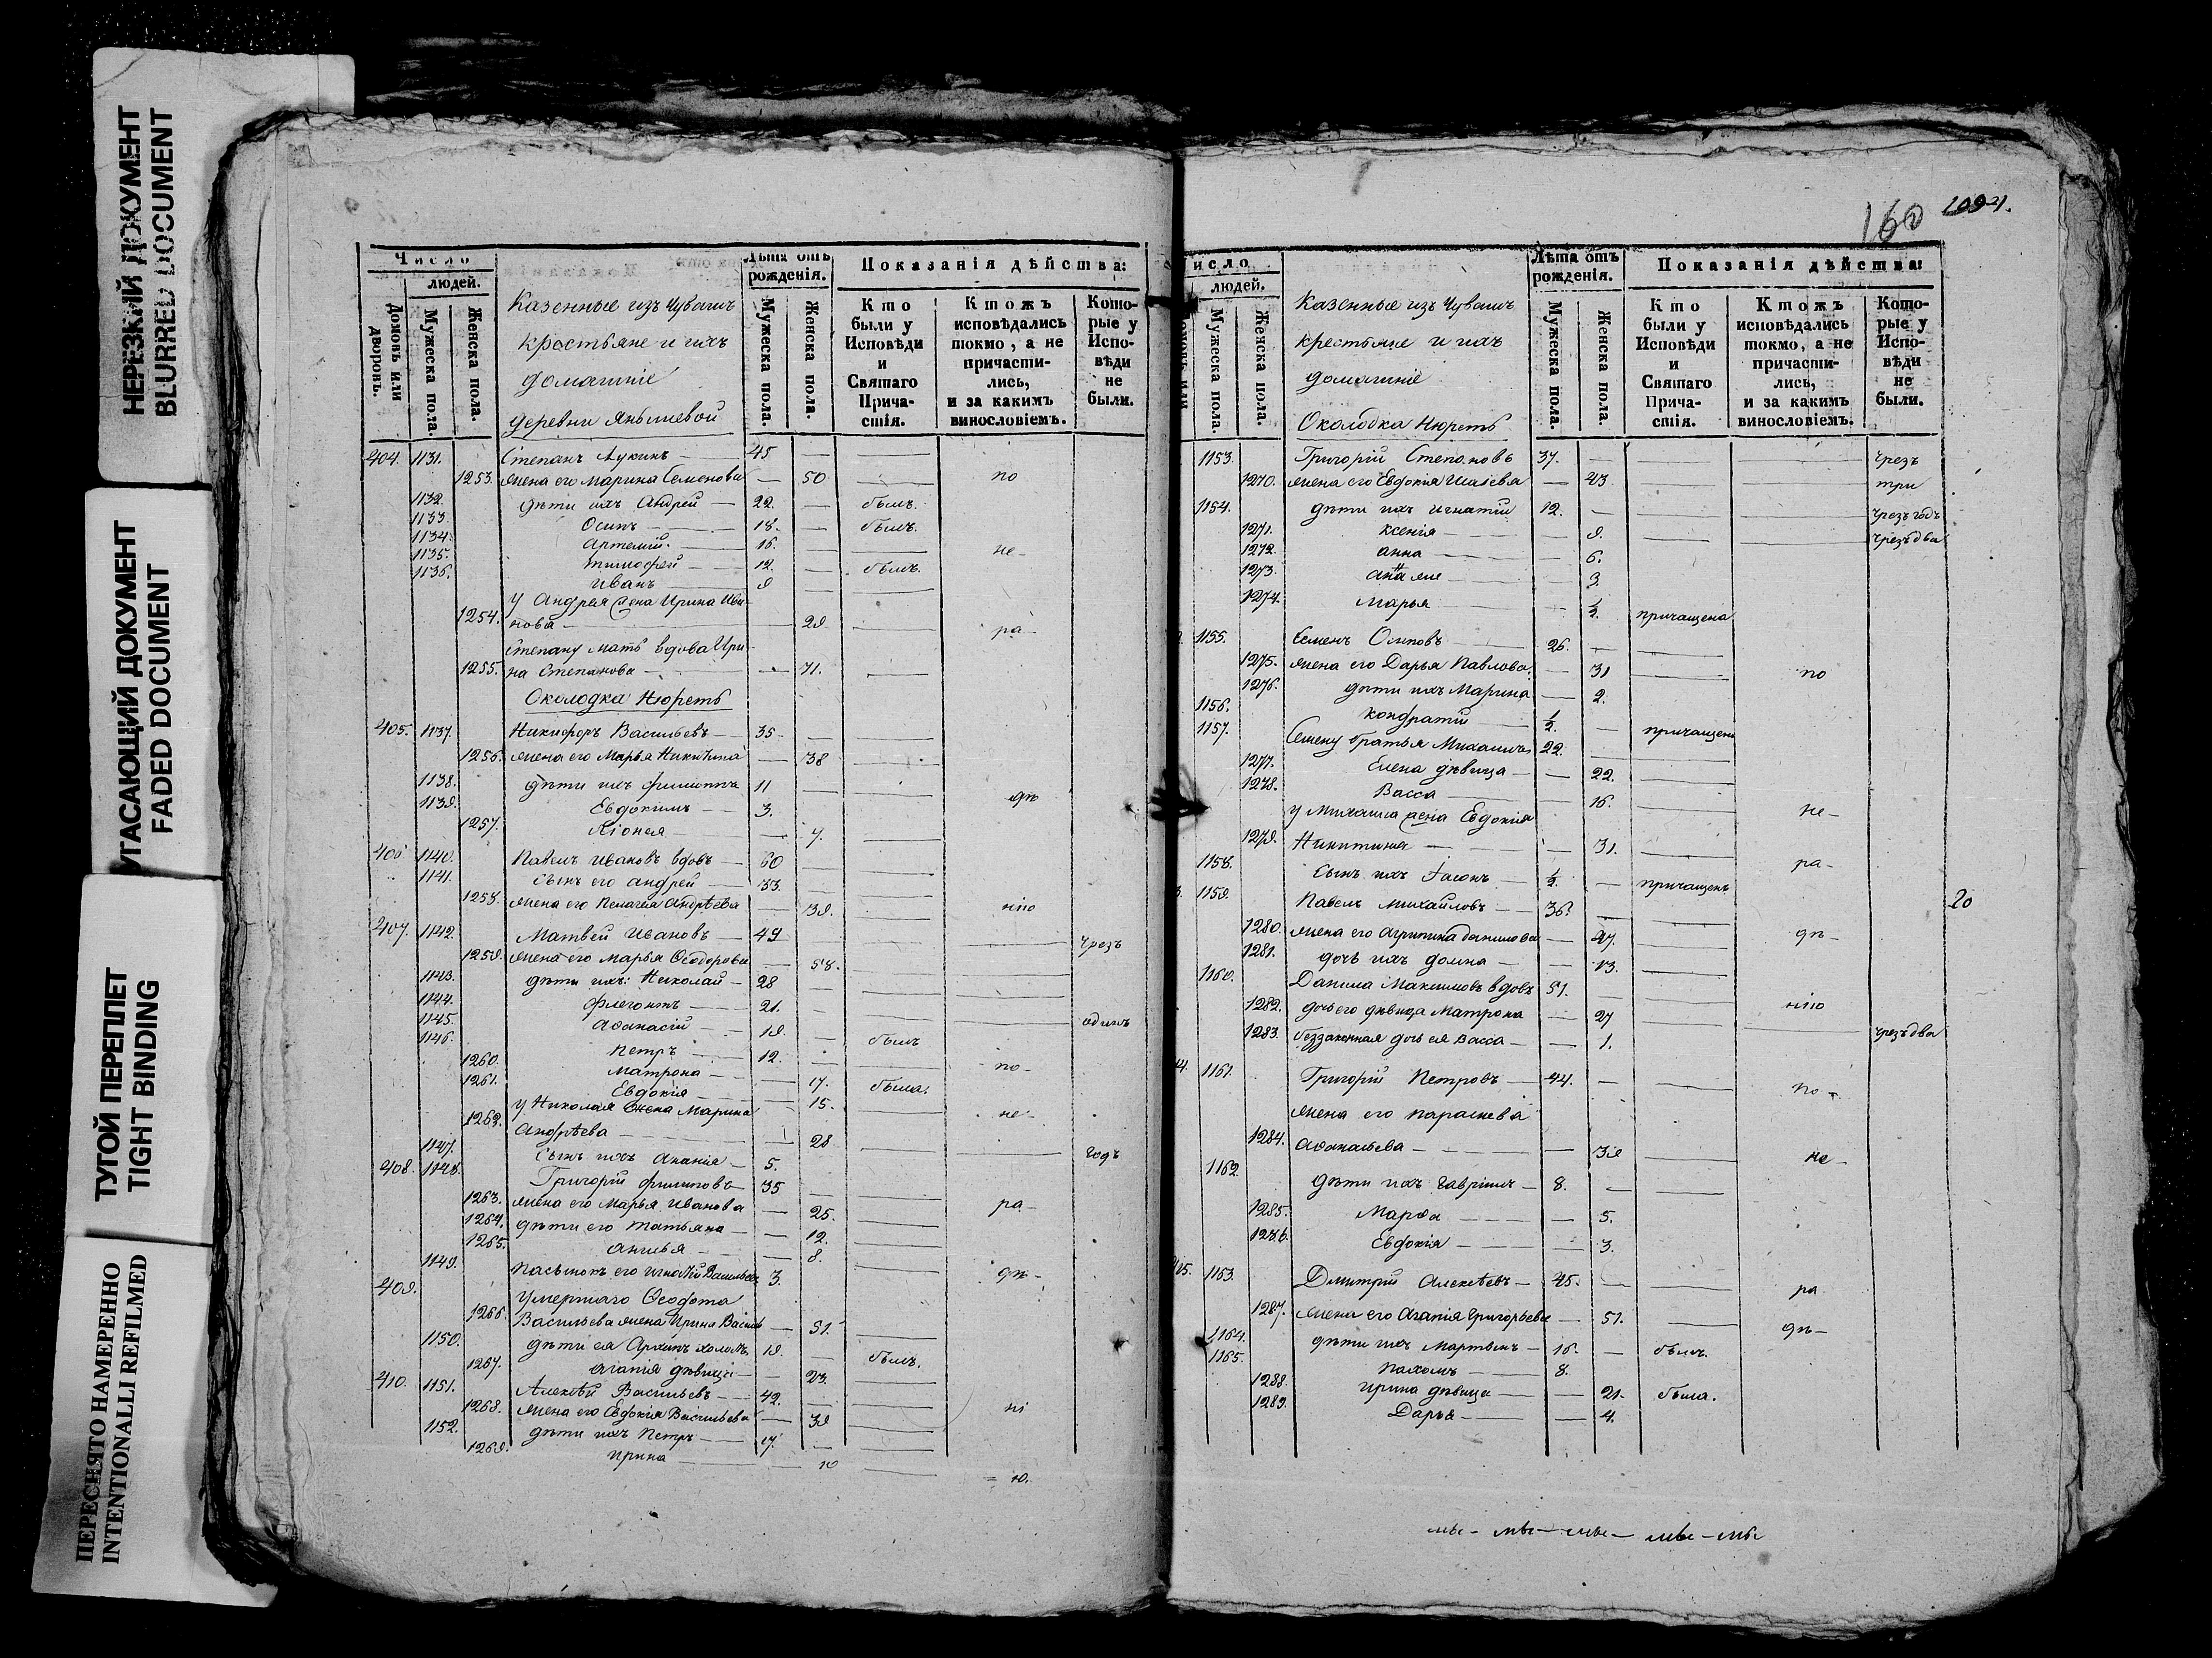 НЕРЕЗКИЙ ДОКУМЕНТ
BLURRED DOCUMENT
УГАСАЮЩИЙ ДОКУМЕНТ
FADED DOCUMENT
ТУГОЙ ПЕРЕПЛЕТ
TIGHT BINDING
ПЕРЕСНЯТО НАМЕРЕННО
INTENTIONALLI REFILMED
Число
людей.
Домовъ или дворовъ.
Мужеска пола.
Женска пола.
Казенные изъ Чувашъ
крестьяне и ихъ
домашніе
деревни
Лѣта отъ рожденія.
Мужеска пола.
Женска пола.
Показанія дѣйства:
Кто были у Исповѣди и Святаго Причастія.
Ктожъ исповѣдались токмо, а не причастились, и за какимъ винословіемъ.
Которые у Исповѣди не были.
404. 1131. Степанъ Лукинъ — 45 —
1253. жена его Марина Семенова — 50 по
1132. дѣти ихъ Андрей — 22. — былъ.
1133. Осипъ — 18. — былъ.
1134. Артемій — 16. не-
1135. Тимофей — 12. — былъ.
1136. Иванъ — 9
У Андрея жена Ирина Ива-
1254. нова — 29 ра-
Степану мать вдова Ири-
1255. на Степанова — 71.
Околодка Нюреть
405. 1137. Никифоръ Васильевъ — 35
1256. жена его Марья Никитина — 38
1138. дѣти ихъ Филиппъ 11
1139. Евдокимъ — 3. дѣ
1257. 7.
406 1140. Павелъ Ивановъ вдовъ — 60
1141. сынъ его Андрей — 33.
1258. жена его Пелагея Андрѣева — 39. нію
407. 1142. Матвей Ивановъ — 49 чрезъ
1259. жена его Марья Ѳеодорова — 58.
1143. дѣти ихъ: Николай — 28
1144. Флегонтъ — 21. одинъ
1145. Аѳанасій — 19. — былъ
1146. Петръ — 12. по-
1260. Матрона — 17. была.
1261. Евдокія — 15. не-
У Николая жена Марина
1262. Андрѣева — 28
1147. Сынъ ихъ Ананія — 5. годъ
408. 1148. Григорій Филиповъ — 35
1263. жена его Марья Иванова — 25. ра-
1264. дѣти его Татьяна — 12.
1265. 8.
1149. пасынокъ его Игнатій Васильевъ 3. дѣ-
409. Умершаго Ѳеодота
1266. Васильева жена Ирина — 51.
1150. дѣти ея Архипъ холостъ 19. — былъ.
1267. Агапія дѣвица — 23.
410. 1151. Алексѣй Васильевъ — 42.
1268. жена его Евдокія Васильева — 39 ні
1152. дѣти ихъ Петръ — 17. —
1269. Ирина — 10
ю.
160
1094.
Число
людей.
Мужеска пола.
Женска пола.
Казенные изъ Чувашъ
крестьяне и ихъ
домашніе
Околодка Нюреть
Лѣта отъ рожденія.
Мужеска пола.
Женска пола.
Показанія дѣйства:
Кто были у Исповѣди и Святаго Причастія.
Ктожъ исповѣдались токмо, а не причастились, и за какимъ винословіемъ.
Которые у Исповѣди не были.
1153. Григорій Степановъ 37. — чрезъ
1270. жена его Евдокія — 43 три
1154. дѣти ихъ Игнатій 12. — чрезъ годъ
1271. Ксенія — 9. чрезъ два
1272. Анна — 6.
1273. 3.
1274. Марья — ½. причащена
1155. Семенъ Осиповъ 26. —
1275. жена его Дарья Павлова — 31 по
1276. дѣти ихъ Марина — 2.
1156. Кондратій — ½. — причащенъ
1157. Семену братья Михаилъ 22.
1277. Елена дѣвица — 22.
1278. Васса — 16. не-
У Михаила жена Евдокія
1279. Никитина — 31. ра-
1158. Сынъ ихъ — ½. — причащенъ
1159. Павелъ Михайловъ — 36. —
1280. жена его Агрипина Данилова — 47. дѣ-
1281. дочь ихъ Домна — 13.
1160. Данила Максимовъ вдовъ 51. нію
1282. дочь его дѣвица Матрона — 27
1283. беззаконная дочь ея Васса — 1. чрезъ два
1161. Григорій Петровъ — 44. — по-
жена его Параскева
1284. Аѳанасьева — 39 не-
1162. дѣти ихъ Гавріилъ — 8. —
1285. Марѳа — 5.
1286. Евдокія — 3.
1163. Дмитрій Алексѣевъ — 45. ра
1287. жена его Агапія Григорьева — 51. дѣ-
1164. дѣти ихъ Мартынъ — 16. — былъ.
1165. Пахомъ — 8.
1288. Ирина дѣвица — 21. была.
1289. Дарья — 4.
20
мы- мы- мы- мы- мы